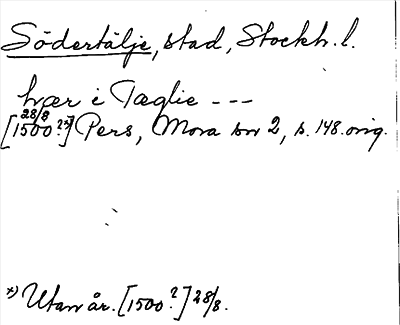 Södertälje, stad, Stockh. l.
hær i Tæglie ---
28/8
[1500?*)] Pers, Mora br 2, s. 148. orig.
*) Utan år. [1500?] 28/8.